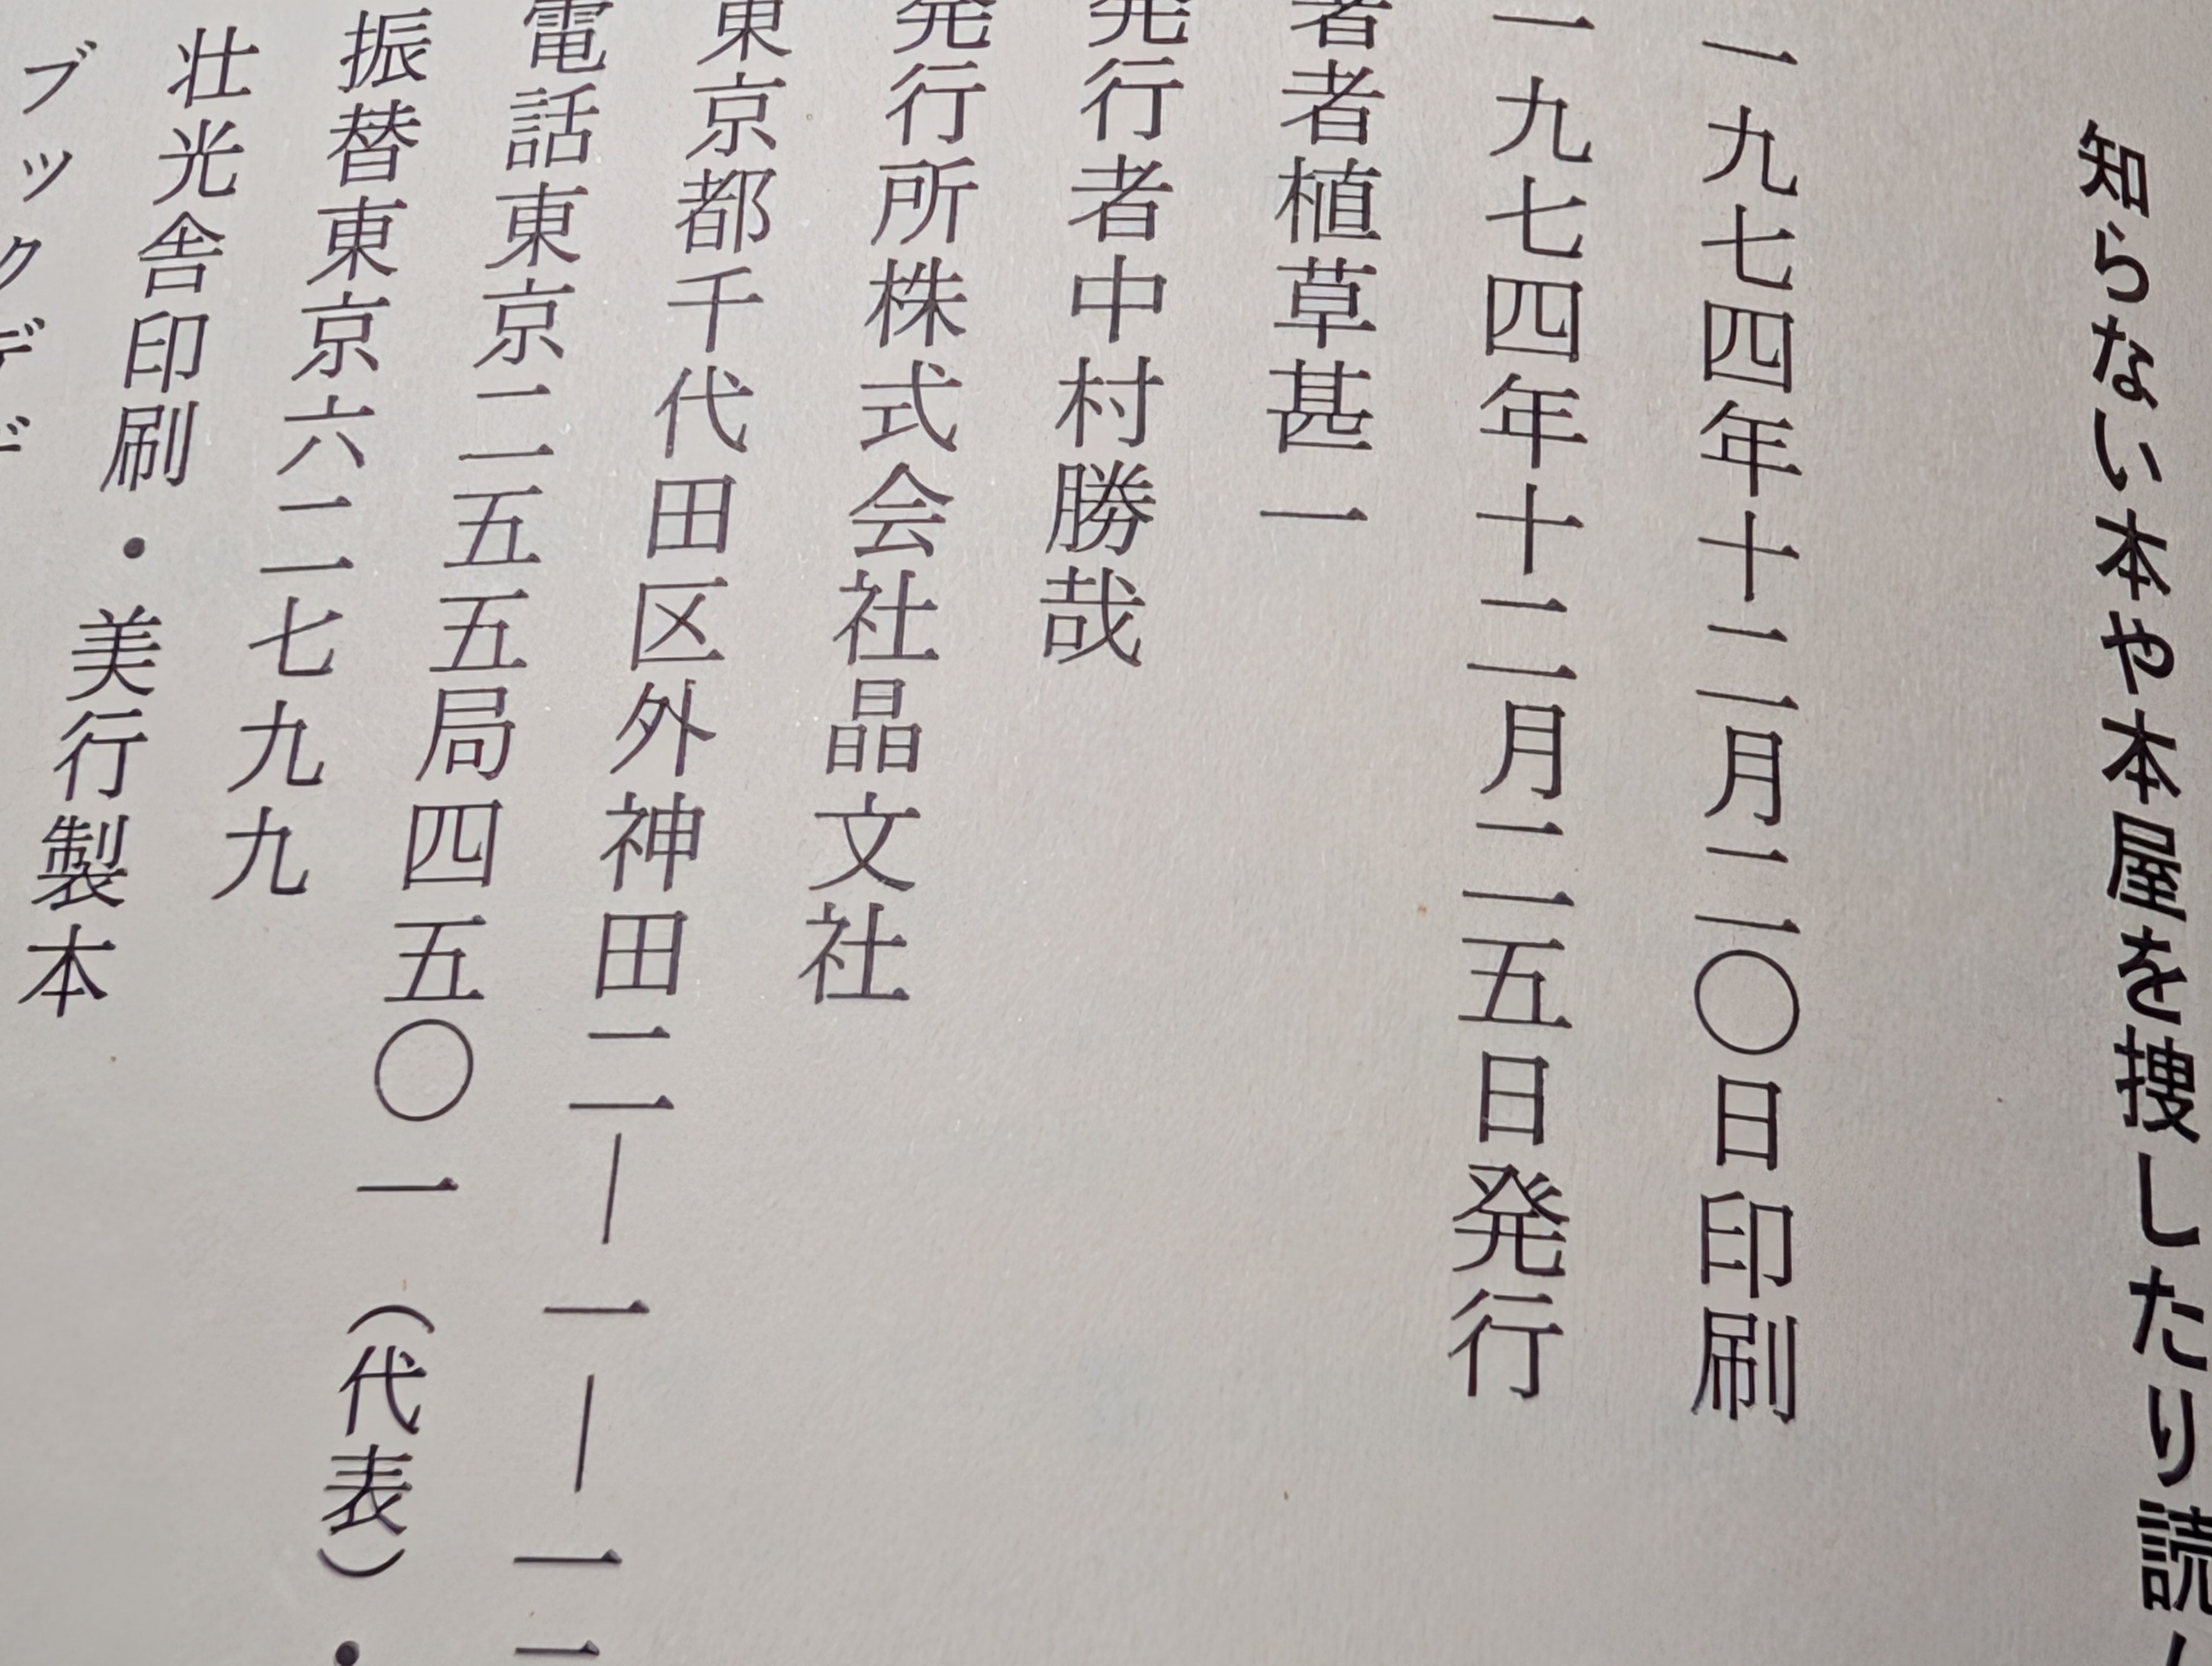 知らない本や本屋を捜したり読
一九七四年十二月二〇日印刷
一九七四年十二月二五日発行
著者植草甚一
発行者中村勝哉
発行所株式会社晶文社
東京都千代田区外神田二―一―一
電話東京二五五局四五〇一（代表）・
振替東京六二七九九
壮光舎印刷・美行製本
ブックデ